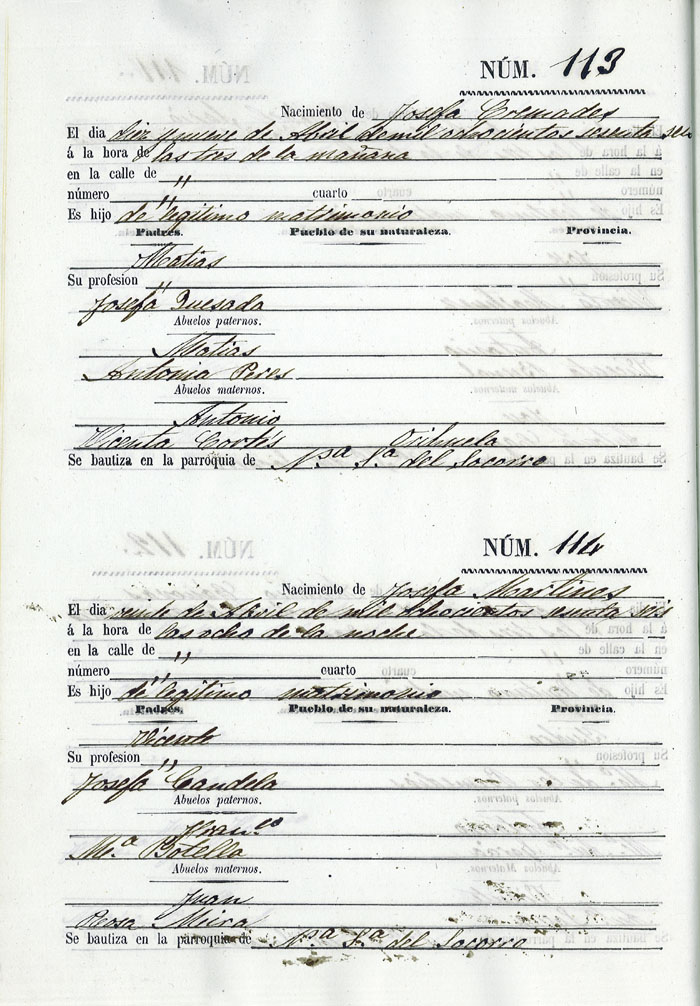 NÚM. 113
Nacimiento de Josefa Cremades
El dia diez y nueve de Abril de mil ochocientos sesenta seis
á la hora de las tres de la mañana
en la calle de "
número " cuarto
Es hijo de legitimo matrimonio
Padres. Pueblo de su naturaleza. Provincia.
Matias
Su profesion "
Josefa Quesada
Abuelos paternos.
Matias
Antonia Peres
Abuelos maternos.
Antonio
Vicenta Cortés Orihuela
Se bautiza en la parroquia de Nsa Sa del Socorro
NÚM. 114
Nacimiento de Josefa Martines
El dia veinte de Abril de mil ochocientos sesenta seis
á la hora de las ocho de la noche
en la calle de "
número " cuarto
Es hijo de legitimo matrimonio
Padres. Pueblo de su naturaleza. Provincia.
Vicente
Su profesion "
Josefa Candela
Abuelos paternos.
Franco
Ma Botella
Abuelos maternos.
Juan
Rosa Mira
Se bautiza en la parroquia de Nsa Sa del Socorro